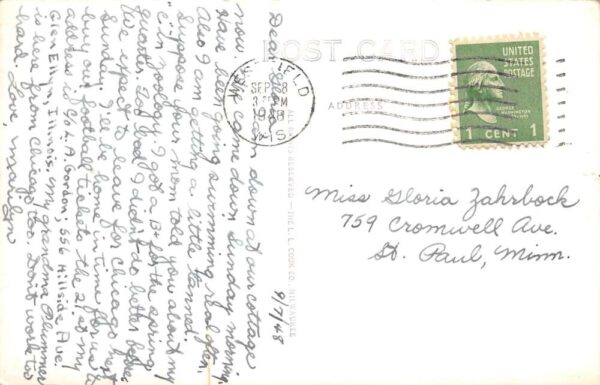 POST CARD
ADDRESS
UNITED
STATES
POSTAGE
GEORGE
WASHINGTON
1 CENT 1
SEP 8
PM
WIS
Miss Gloria Zahrbock
759 Cromwell Ave.
St. Paul, Minn.
Dear Gloria,
am down at our cottage
now. We came down Sunday morning.
Have been going swimming real often.
Also I am getting a little tanned.
Suppose your mom told you about my
C in Zoology. I got a B+ for the spring
quarter. Too bad I didn't do better before.
We expect to leave for Chicago next
Sunday. I'll be home in time for us to
buy our football tickets the 21st. My
address is c/o L. A. Gordon, 556 Hillside Ave,
Glen Ellyn, Illinois. My grandma Plummer
is here from Chicago, too. Don't work too
hard. Love, Marilyn
9/7/48
THE L. L. COOK CO., MILWAUKEE